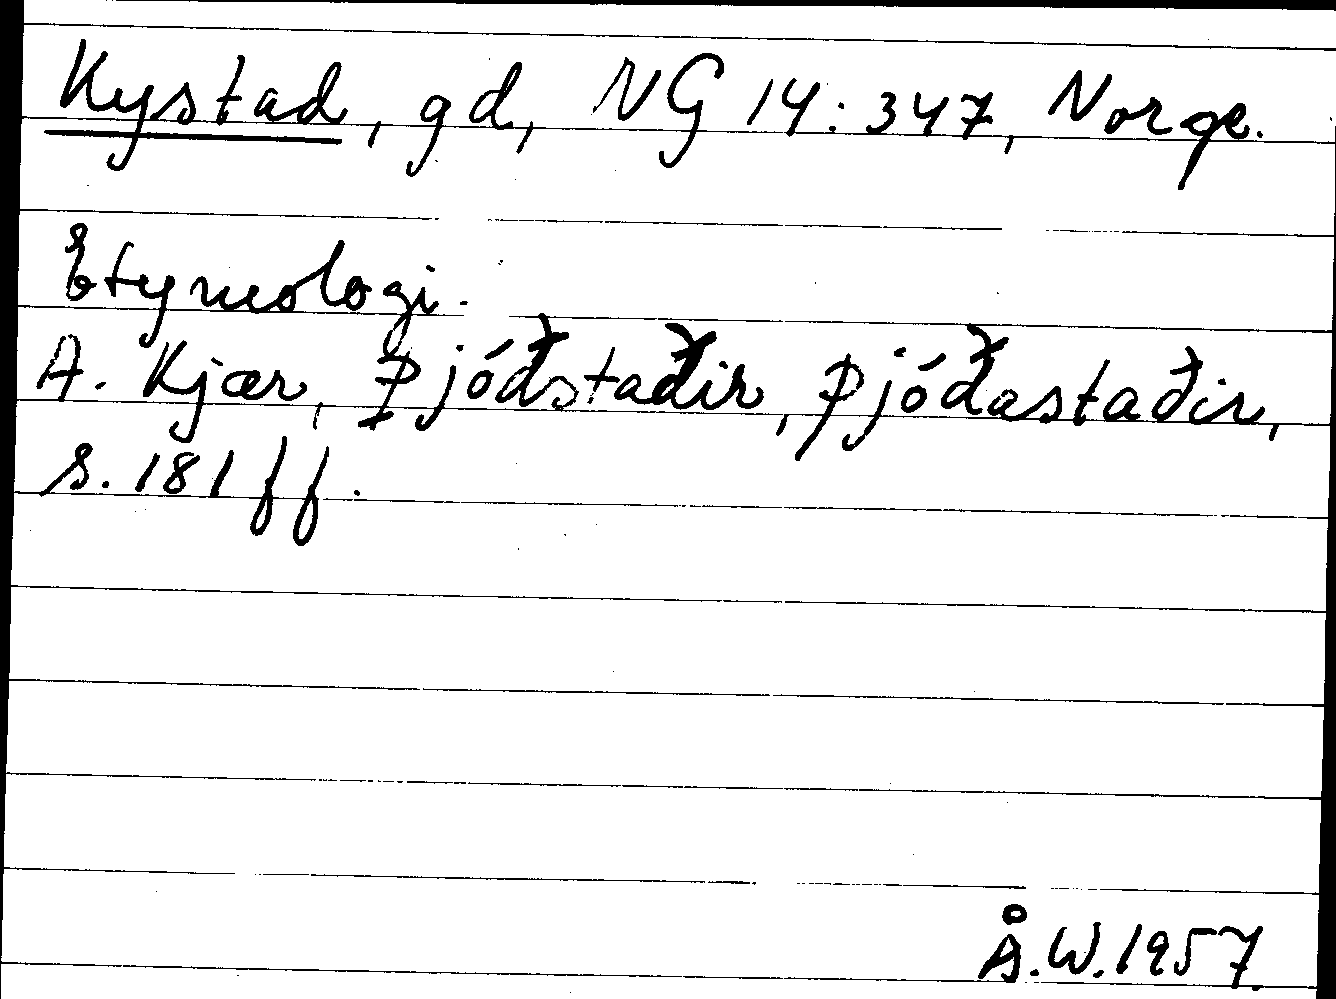 Kystad, gd, NG 14:347, Norge.
Etymologi.
A. Kjær, Þjóðstaðir, Þjóðastaðir,
s. 181 ff.
Å.W. 1957.